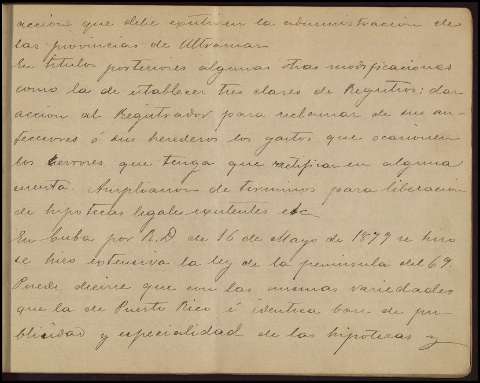 acción que debe existir en la administración de
las provincias de Ultramar.
En títulos posteriores algunas otras modificaciones
como la de establecer tres clases de Registros; dar
acción al Registrador para reclamar de sus an-
tecesores ó sus herederos los gastos que ocasionen
los errores que tenga que rectificar en alguna
Ampliación de términos para liberación
de hipotecas legales existentes etc
En Cuba por R.D. de 16 de Mayo de 1879 se hizo
se hizo extensiva la ley de la península del 69.
Puede decirse que con las mismas variedades
que la de Puerto Rico é identica base de pu-
blicidad y especialidad de las hipotecas y